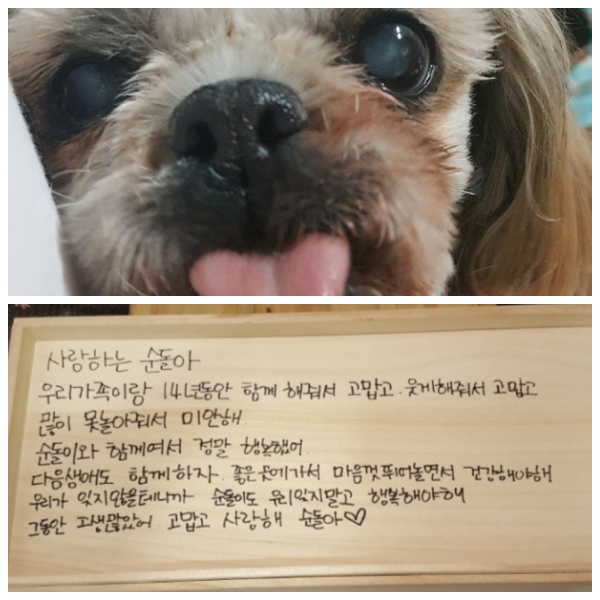 사랑하는 순돌아
우리가족이랑 14년동안 함께 해줘서 고맙고. 웃게해줘서 고맙고
많이 못놀아줘서 미안해
순돌이와 함께여서 정말 행복했어.
다음생애도 함께하자. 좋은곳에가서 마음껏뛰어놀면서 건강해야해
우리가 잊지않을테니까 순돌이도 우리잊지말고 행복해야해
그동안 고생많았어. 고맙고 사랑해 순돌아♡